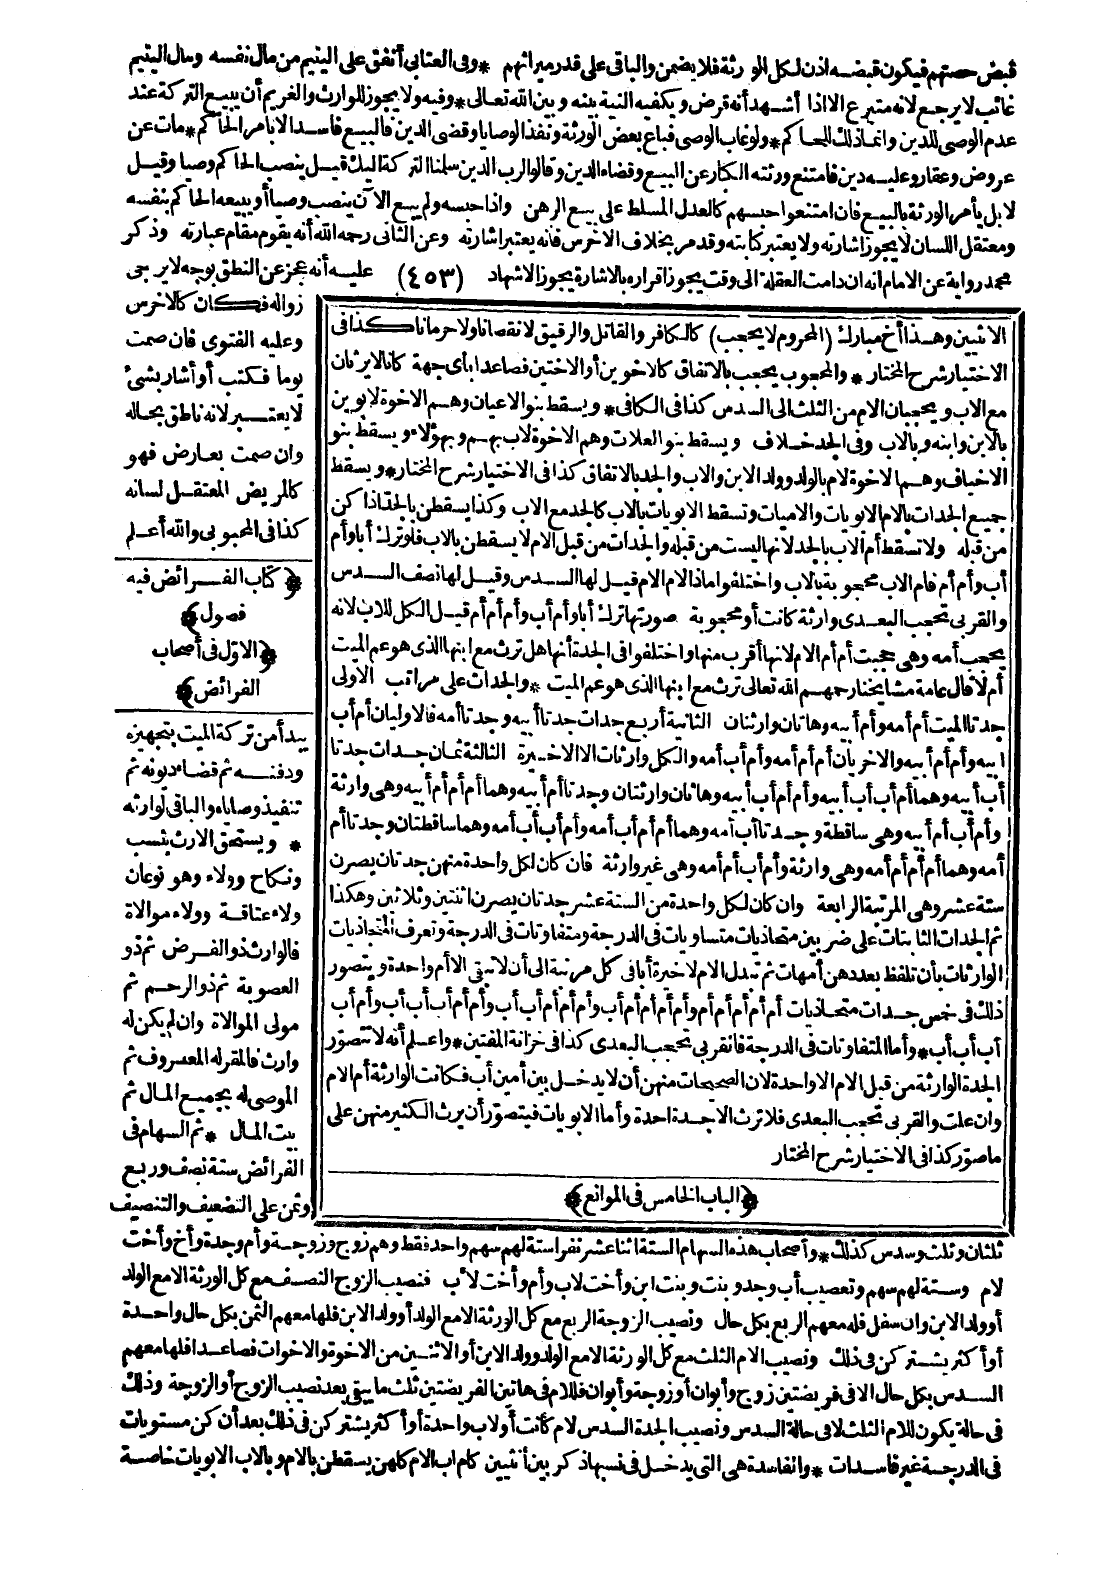 قبض حصتهم فيكون قبضه اذن لكل الورثة فلا يضمن والباقى على قدر ميراثهم * وفى العتابى أنفق على اليتيم من مال نفسه ومال اليتيم
غائب لا يرجع لانه متبرع الا اذا أشهد أنه قرض ويكفيه النية بينه وبين الله تعالى * وفيه ولا يجوز للوارث والغريم أن يبيع التركة عند
عدم الوصى للدين وانما ذلك للحاكم * ولو غاب الوصى فباع بعض الورثة ونفذ الوصايا وقضى الدين فالبيع فاسد الا بأمر الحاكم * مات عن
عروض وعقار وعليه دين فامتنع ورثته الكبار عن البيع وقضاء الدين وقالوا لرب الدين سلمنا التركة اليك قيل ينصب الحاكم وصيا وقيل
لا بل يأمر الورثة بالبيع فان امتنعوا حبسهم كالعدل المسلط على بيع الرهن واذا حبسه ولم يبيع الآن ينصب وصيا أو يبيعه الحاكم بنفسه
ومعتقل اللسان لا يجوز اشارته ولا يعتبر كتابته وقد مر بخلاف الاخرس فانه يعتبر اشارته وعن الثانى رحمه الله أنه يقوم مقام عبارته وذكر
محمد رواية عن الامام انه ان دامت العقلة الى وقت يجوز اقراره بالاشارة يجوز الاشهاد (٤٥٣) عليه أنه عجز عن النطق بوجه لا يرجى
زواله فكان كالاخرس
وعليه الفتوى فان صمت
يوما فكتب أو أشار بشئ
لا يعتبر لانه ناطق بحاله
وان صمت بعارض فهو
كالمريض المعتقل لسانه
كذا فى المحبوبى والله أعلم
﴿كتاب الفرائض فيه
فصول﴾
﴿الاوّل فى أصحاب
الفرائض﴾
يبدأ من تركة الميت بتجهيزه
ودفنه ثم قضاء ديونه ثم
تنفيذ وصاياه والباقى لوارثه
* ويستحق الارث بنسب
ونكاح وولاء وهو نوعان
ولاء عتاقة وولاء موالاة
فالوارث ذو الفرض ثم ذو
العصوبة ثم ذو الرحم ثم
مولى الموالاة وان لم يكن له
وارث فالمقر له المعروف ثم
الموصى له بجميع المال ثم
بيت المال * ثم السهام فى
الفرائض ستة نصف وربع
وثمن على التضعيف والتنصيف
الاثنين وهذا أخ مبارك (المحروم لا يحجب) كالكافر والقاتل والرقيق لا نقصانا ولا حرمانا كذا فى
الاختيار شرح المختار * والمحجوب يحجب بالاتفاق كالاخوين أو الاختين فصاعدا بأى جهة كانا لا يرثان
مع الاب ويحجبان الام من الثلث الى السدس كذا فى الكافى * ويسقط بنو الاعيان وهم الاخوة لابوين
بالابن وابنه وبالاب وفى الجد خلاف ويسقط بنو العلات وهم الاخوة لاب بهم وبهؤلاء ويسقط بنو
الاخياف وهم الاخوة لام بالولد وولد الابن والاب والجد بالاتفاق كذا فى الاختيار شرح المختار * ويسقط
جميع الجدات بالام الابويات والاميات وتسقط الابويات بالاب كالجد مع الاب وكذا يسقطن بالجد اذا كن
من قبله ولا تسقط أم الاب بالجد لانها ليست من قبله والجدات من قبل الام لا يسقطن بالاب فلو ترك أبا وأم
أب وأم أم فأم الاب محجوبة بالاب واختلفوا ماذا لام الام قيل لها السدس وقيل لها نصف السدس
والقربى تحجب البعدى وارثة كانت أو محجوبة صورتها ترك أبا وأم أب وأم أم أم قيل الكل للاب لانه
يحجب أمه وهى حجبت أم أم الام لانها أقرب منها واختلفوا فى الجدة أنها هل ترث مع ابنها الذى هو عم الميت
أم لا قال عامة مشايخنا رحمهم الله تعالى ترث مع ابنها الذى هو عم الميت * والجدات على مراتب الاولى
جدتا الميت أم أمه وأم أبيه وهاتان وارثتان الثانية أربع جدات جدتا أبيه وجدتا أمه فالاوليان أم أب
ابيه وأم أم أبيه والاخريان أم أم أمه وأم أب أمه والكل وارثات الا الاخيرة الثالثة ثمان جدات جدتا
أب أبيه وهما أم أب أب أبيه وأم أم أب أبيه وهاتان وارثتان وجدتا أم أبيه وهما أم أم أم أبيه وهى وارثة
وأم أب أم أبيه وهى ساقطة وجدتا أب أمه وهما أم أم أب أمه وأم أب أب أمه وهما ساقطتان وجدتا أم
أمه وهما أم أم أم أمه وهى وارثة وأم أب أم أمه وهى غير وارثة فان كان لكل واحدة منهن جدتان يصرن
ستة عشر وهى المرتبة الرابعة وان كان لكل واحدة من الستة عشر جدتان يصرن اثنتين وثلاثين وهكذا
ثم الجدات الثابتات على ضربين متحاذيات متساويات فى الدرجة ومتفاوتات فى الدرجة وتعرف المتحاذيات
الوارثات بأن تلفظ بعددهن أمهات ثم تبدل الام الاخيرة أبا فى كل مرتبة الى أن لا تبقى الا أم واحدة ويتصور
ذلك فى خمس جدات متحاذيات أم أم أم أم أم وأم أم أم أم أب وأم أم أم أب أب وأم أم أب أب أب وأم أب
أب أب أب * وأما المتفاوتات فى الدرجة فالقربى تحجب البعدى كذا فى خزانة المفتين * واعلم أنه لا تتصور
الجدة الوارثة من قبل الام الا واحدة لان الصحيحات منهن أن لا يدخل بين أمين أب فكانت الوارثة أم الام
وان علت والقربى تحجب البعدى فلا ترث الا جدة احدة وأما الابويات فيتصوّر أن يرث الكثير منهن على
ما صوّر كذا فى الاختيار شرح المختار
﴿الباب الخامس فى الموانع﴾
ثلثان وثلث وسدس كذلك * وأصحاب هذه السهام الستة اثنا عشر نفرا ستة لهم سهم واحد فقط وهم زوج وزوجة وأم وجدة وأخ وأخت
لام وستة لهم سهم وتعصيب أب وجد وبنت وبنت ابن وأخت لاب وأم وأخت لأب فنصيب الزوج النصف مع كل الورثة الا مع الولد
أو ولد الابن وان سفل فله معهم الربع بكل حال ونصيب الزوجة الربع مع كل الورثة الا مع الولد أو ولد الابن فلها معهم الثمن بكل حال واحدة
أو أكثر يشتركن فى ذلك ونصيب الام الثلث مع كل الورثة الا مع الولد وولد الابن أو الاثنين من الاخوة والاخوات فصاعدا فلها معهم
السدس بكل حال الا فى فريضتين زوج وأبوان أو زوجة وأبوان فللام فى هاتين الفريضتين ثلث ما يبقى بعد نصيب الزوج أو الزوجة وذلك
فى حالة يكون للام الثلث لا فى حالة السدس ونصيب الجدة السدس لام كانت أو لاب واحدة أو أكثر يشتركن فى ذلك بعد أن كن مستويات
فى الدرجة غير فاسدات * والفاسدة هى التى يدخل فى نسبها ذكر بين أنثيين كام اب الام كلهن يسقطن بالام وبالاب الابويات خاصة